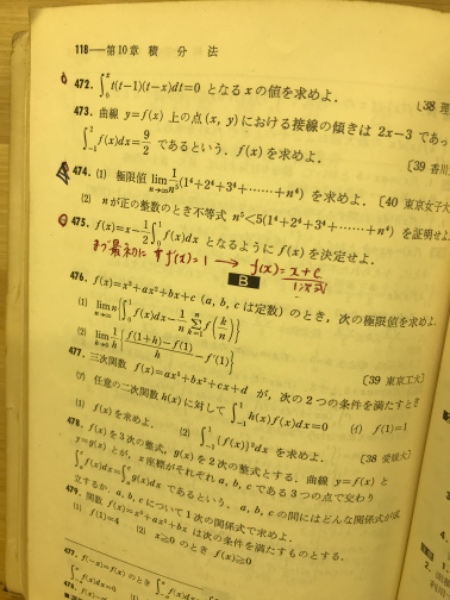 118—第10章 積 分 法
472. ∫₀ˣ t(t−1)(t−x)dt=0 となる x の値を求めよ. 〔38
473. 曲線 y=f(x) 上の点(x, y)における接線の傾きは 2x−3 であっ
∫₋₁² f(x)dx=9/2 であるという. f(x) を求めよ. 〔39 香川
474. (1) 極限値 lim_{n→∞} 1/n⁵(1⁴+2⁴+3⁴+……+n⁴) を求めよ. 〔40 東京女子大
(2) n が正の整数のとき不等式 n⁵<5(1⁴+2⁴+3⁴+……+n⁴) を証明せよ
475. f(x)=x−1/2∫₀¹ f(x)dx となるように f(x) を決定せよ.
まづ最初に f′(x)=1 → f(x)=x+c
1次式
B
476. f(x)=x³+ax²+bx+c (a, b, c は定数) のとき, 次の極限値を求めよ.
(1) lim_{n→∞} n{∫₀¹ f(x)dx−1/n Σ_{k=1}^{n} f(k/n)}
(2) lim_{h→0} 1/h{(f(1+h)−f(1))/h −f′(1)} 〔39 東京工大〕
477. 三次関数 f(x)=ax³+bx²+cx+d が, 次の2つの条件を満たすとき
(ｱ) 任意の二次関数 h(x) に対して ∫₋₁¹ h(x)f(x)dx=0 (ｲ) f(1)=1
(1) f(x) を求めよ. (2) ∫₋₁¹ {f(x)}²dx を求めよ. 〔38 愛媛大〕
478. f(x) を3次の整式, g(x) を2次の整式とする. 曲線 y=f(x) と
y=g(x) とが, x 座標がそれぞれ a, b, c である3つの点で交わり
f(x)dx= g(x)dx であるという. a, b, c の間にはどんな関係式が成
立するか. a, b, c について1次の関係式で求めよ.
479. 関数 f(x)=x³+ax²+bx は次の条件を満たすものとする.
(1) f(1)=4 (2) x≥0 のとき f(x)≥0
477. f(−x)=f(x) のとき